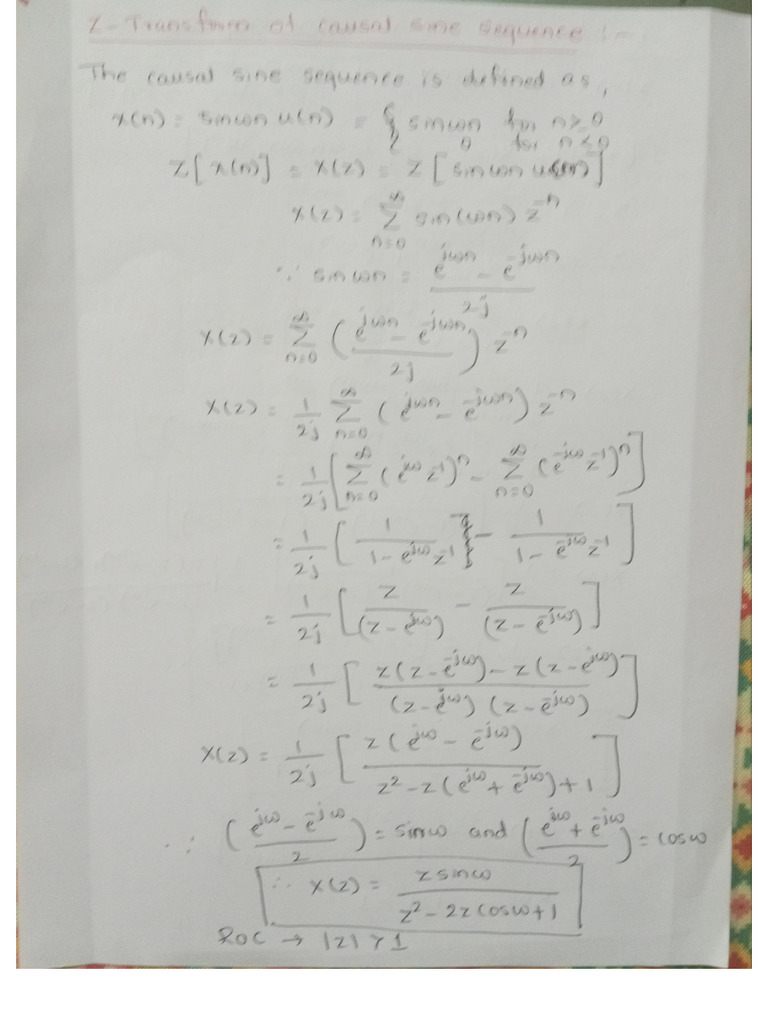 Z-Transform of causal sine sequence :-
The causal sine sequence is defined as,
x(n) = sinωn u(n) = { sinωn for n≥0
0 for n<0
Z[x(n)] = X(z) = Z[sinωn u(n)]
X(z) = ∑_{n=0}^{∞} sin(ωn) z^{-n}
∵ sinωn = (e^{jωn} - e^{-jωn})/2j
X(z) = ∑_{n=0}^{∞} ((e^{jωn} - e^{-jωn})/2j) z^{-n}
X(z) = 1/2j ∑_{n=0}^{∞} (e^{jωn} - e^{-jωn}) z^{-n}
= 1/2j [∑_{n=0}^{∞} (e^{jω} z^{-1})^n - ∑_{n=0}^{∞} (e^{-jω} z^{-1})^n]
= 1/2j [1/(1 - e^{jω} z^{-1}) - 1/(1 - e^{-jω} z^{-1})]
= 1/2j [z/(z - e^{jω}) - z/(z - e^{-jω})]
= 1/2j [(z(z - e^{-jω}) - z(z - e^{jω}))/((z - e^{jω})(z - e^{-jω}))]
X(z) = 1/2j [z(e^{jω} - e^{-jω})/(z² - z(e^{jω} + e^{-jω}) + 1)]
∴ ((e^{jω} - e^{-jω})/2) = sinω and ((e^{jω} + e^{-jω})/2) = cosω
∴ X(z) = z sinω/(z² - 2z cosω + 1)
ROC → |z| > 1